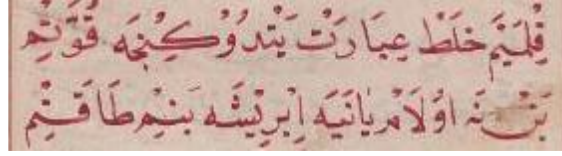 قِلَمَيَمْ خَلَطْ عِبَارَتْ يَتْدُوُكِنْجَه قُوَّتِمْ
بَنْ نَه اوُلَامْ يَا نَيَه اِيْرِيشَه بَنِمْ طَاقَتِمْ